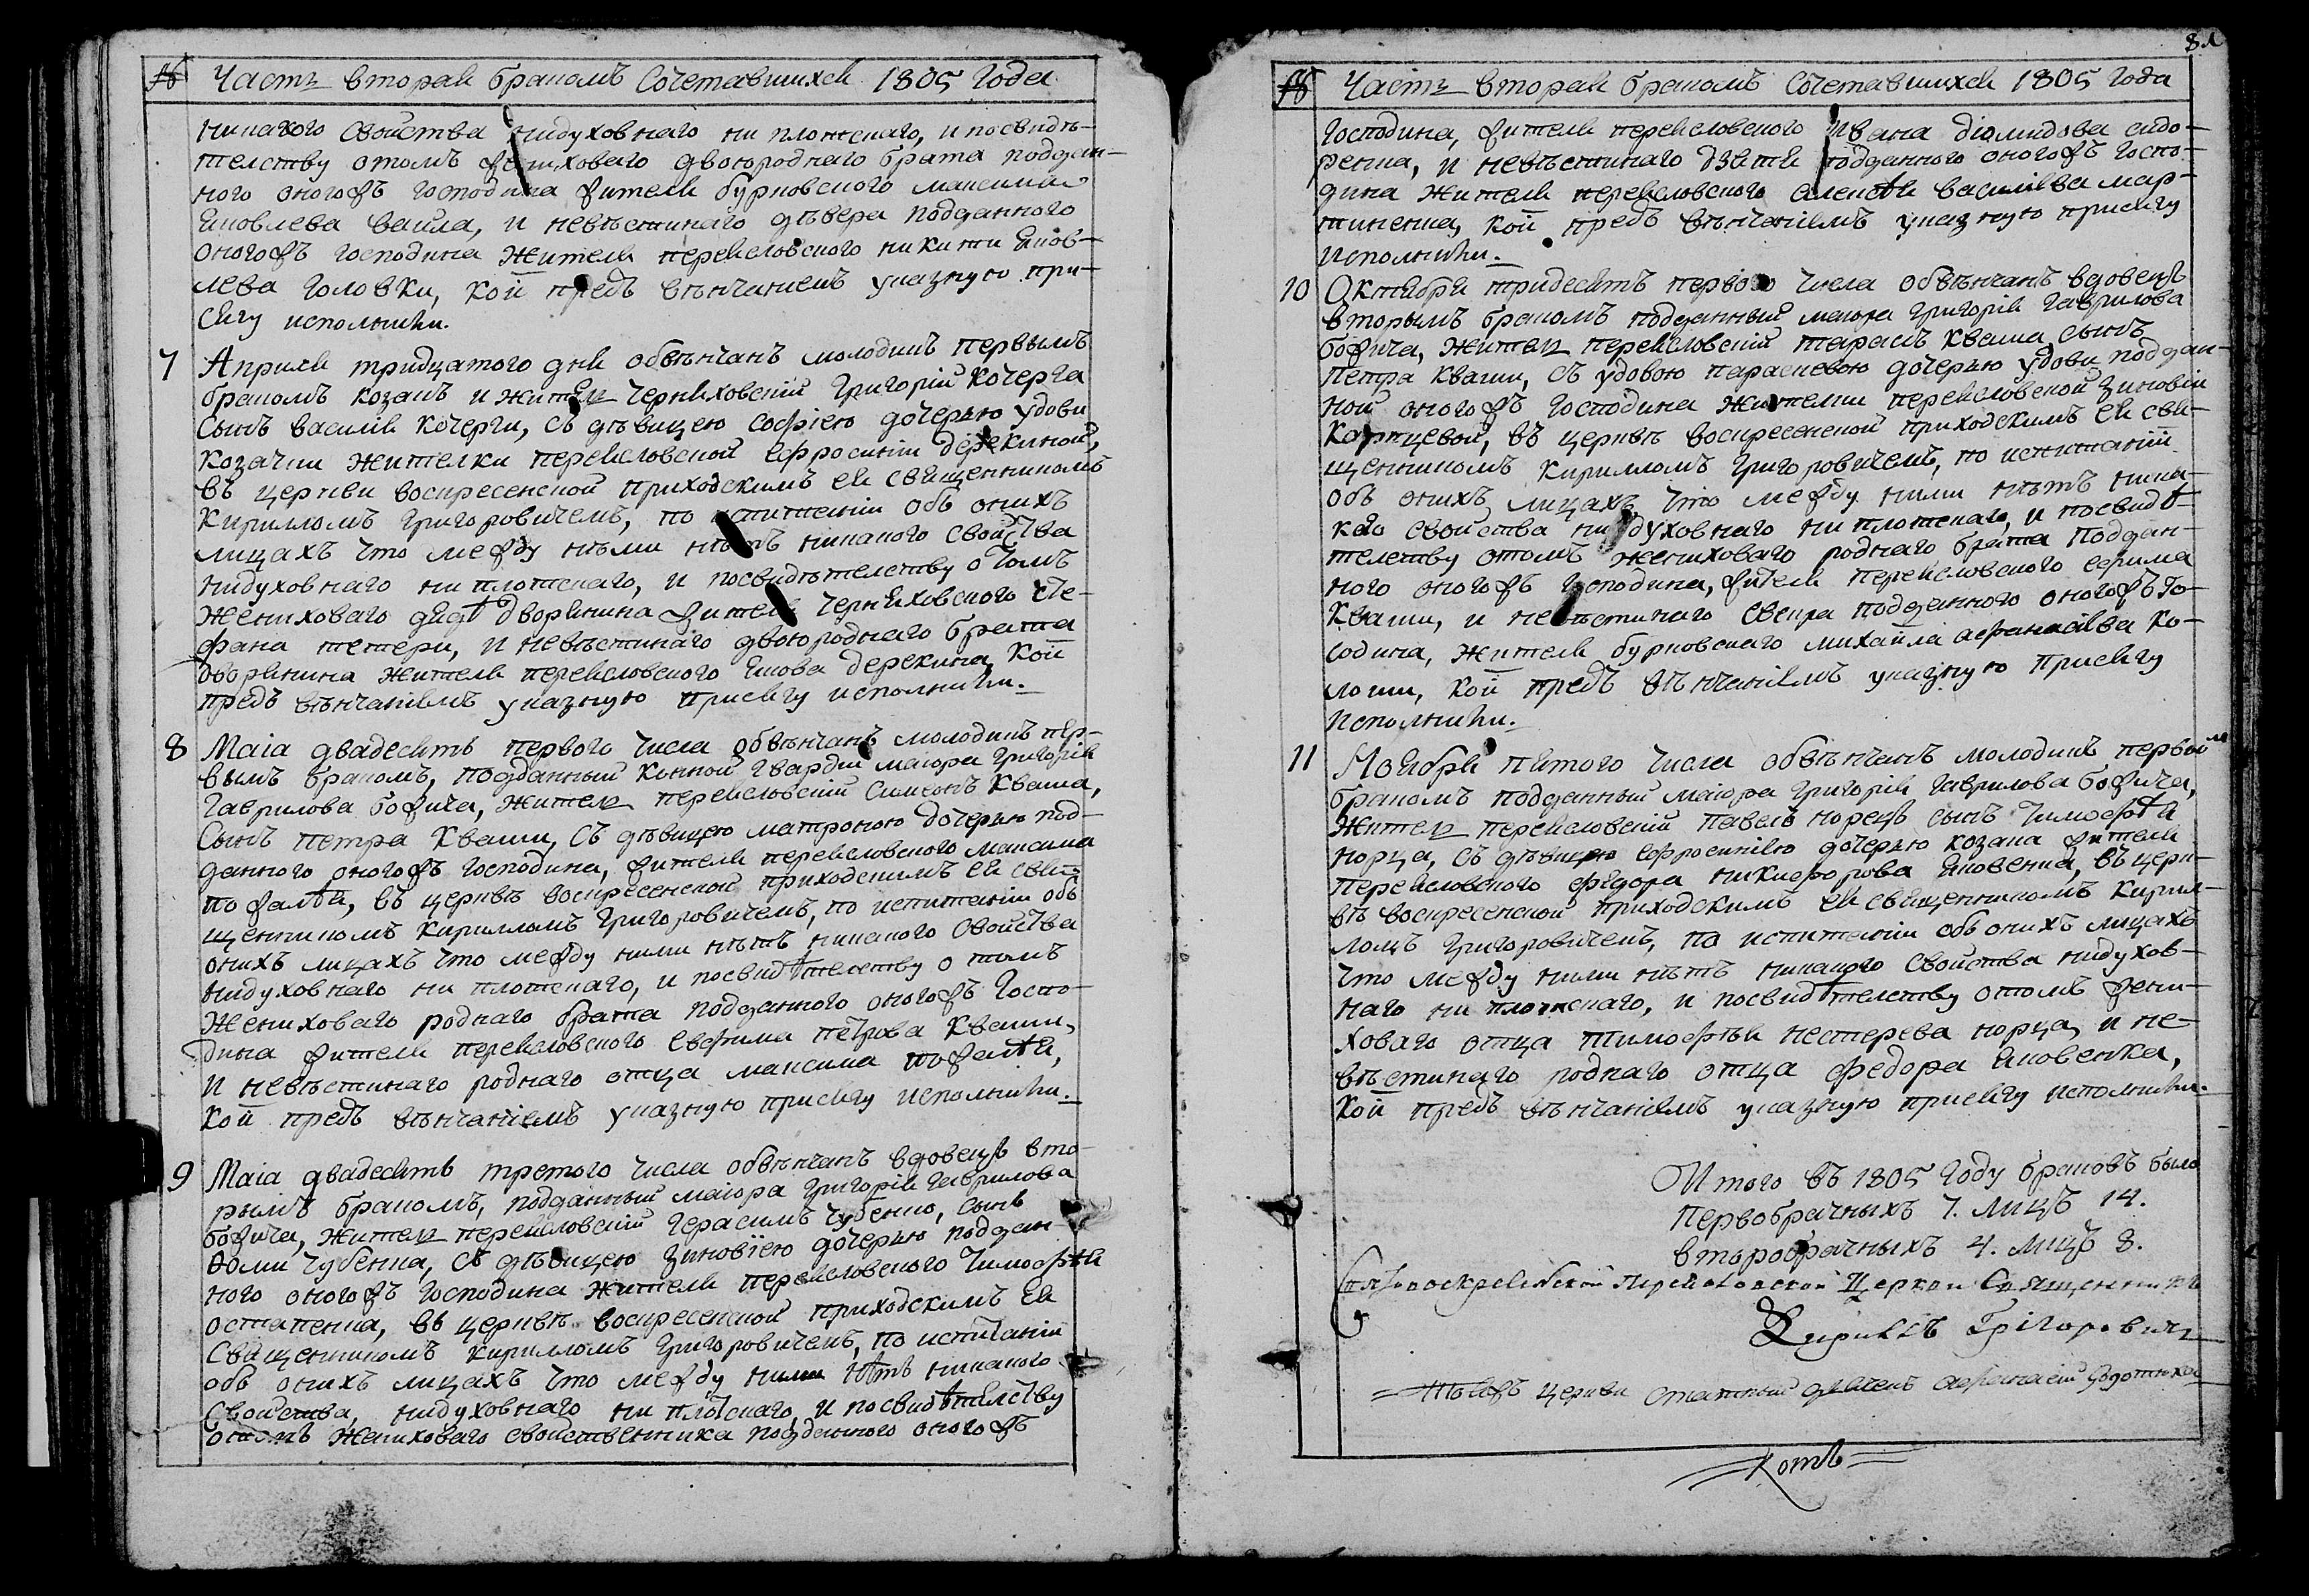 № Часть вторая бракомъ Сочетавшихся 1805 Года
никакого свойства нидуховнаго ни плотскаго, и посвидѣ-
телству отомъ женихового двоюроднаго брата поддан-
ного оногожъ господина жителя бурковского максима
Яковлева вакла, и невѣстинаго дѣвера подданного
оногожъ господина жителя переясловского никити Яков-
лева головки, кои предъ вѣнчаниемъ указную при-
сягу исполнили.
7 Априля тридцатого дня обвѣнчанъ молодикъ первымъ
бракомъ козакъ и житель черняховскій Григорій кочерга
сынъ василія кочерги, съ дѣвицею софіею дочерью удови
козачки жителки переясловской Ефросиніи дерекиной,
въ церкви воскресенской приходскимъ ея священникомъ
кирилломъ Григоровичемъ, по испитаніи объ онихъ
лицахъ что между ними нѣтъ никакого свойства
нидуховнаго ни плотскаго, и посвидѣтелству о томъ
жениховаго дядѣ дворянина жителя черняховского Сте-
фана тетери, и невѣстинаго двоюроднаго брата
дворянина жителя переясловского Якова дерекина, кои
предъ вѣнчаніемъ указную присягу исполнили.
8 Маія двадесятъ первого числа обвѣнчанъ молодикъ пер-
вымъ бракомъ, подданный конной гвардіи маіора Григорія
Гаврилова божича, житель переясловскій Симеонъ Кваша,
Сынъ петра Кваши, съ дѣвицею матроною дочерью под-
данного оногожъ господина, жителя переясловского максима
въ церквѣ воскресенской приходскимъ ея свя-
щенникомъ Кирилломъ Григоровичемъ, по испитаніи объ
онихъ лицахъ что между ними нѣтъ никакого свойства
нидуховнаго ни плотскаго, и посвидѣтелству о томъ
жениховаго роднаго брата подданного оногожъ Госпо-
дина жителя переясловского Евфима петрова Кваши,
и невѣстинаго роднаго отца максима
кои предъ вѣнчаніемъ указную присягу исполнили.
9 Маія двадесятъ третого числа обвѣнчанъ вдовецъ вто-
рымъ бракомъ, подданный маіора Григорія Гаврилова
божича, житель переясловскій Герасимъ Чубенко, сынъ
Фомы Чубенка, съ дѣвицею зиновіею дочерью поддан-
ного оногожъ господина жителя переясловского Тимофѣя
остапенка, въ церквѣ воскресенской приходскимъ ея
священникомъ кирилломъ Григоровичемъ, по испитаніи
объ онихъ лицахъ что между ними нѣтъ никакого
свойства, нидуховнаго ни плотскаго, и посвидѣтелству
отомъ жениховаго свойственника подданного оногожъ
8л
№ Часть вторая бракомъ Сочетавшихся 1805 года
Господина, жителя переясловского Ивана діомидова сидо-
ренка, и невѣстинаго дяди подданного оногожъ госпо-
дина жителя переясловского алексѣя василіева мар-
тиненка, кои предъ вѣнчаніемъ указную присягу
исполнили.
10 Октября тридесятъ первого числа обвѣнчанъ вдовецъ
вторымъ бракомъ подданный маіора Григорія Гаврилова
божича, житель переясловскій тарасъ Кваша, сынъ
Петра Кваши, съ удовою параскевою дочерью удови поддан-
ной оногожъ господина жителки переясловской Зиновіи
въ церквѣ воскресенской приходскимъ ея свя-
щенникомъ кирилломъ Григоровичемъ, по испитаніи
объ онихъ лицахъ что между ними нѣтъ ника-
каго свойства нидуховнаго ни плотскаго, и посвидѣ-
телству отомъ жениховаго роднаго брата поддан-
ного оногожъ господина, жителя переясловского ефима
Кваши, и невѣстинаго свекра подданного оногожъ го-
сподина, жителя бурковского михайла афанасіева Ко-
кои предъ вѣнчаніемъ указную присягу
исполнили.
11 Ноября пятого числа обвѣнчанъ молодикъ первымъ
бракомъ подданный маіора Григорія Гаврилова божича,
житель переясловскій павелъ корецъ сынъ Тимофѣя
корца, съ дѣвицею ефросиніею дочерью козака жителя
переясловского федора никифорова Яковенка, въ церк-
вѣ воскресенской приходскимъ ея священникомъ кирил-
ломъ Григоровичемъ, по испитаніи объ онихъ лицахъ
что между ними нѣтъ никакого свойства нидухов-
наго ни плотскаго, и посвидѣтелству отомъ жени-
ховаго отца тимофѣя нестерева корца, и не-
вѣстинаго роднаго отца федора Яковенка,
кои предъ вѣнчаніемъ указную присягу исполнили.
Итого въ 1805 году браковъ было
первобрачныхъ 7. лицъ 14.
второбрачныхъ 4. лицъ 8.
Святовоскресенской Переясловской Церкви Священникъ
Кириллъ Григоровичъ
Тояжъ церкви статный дячокъ афанасій